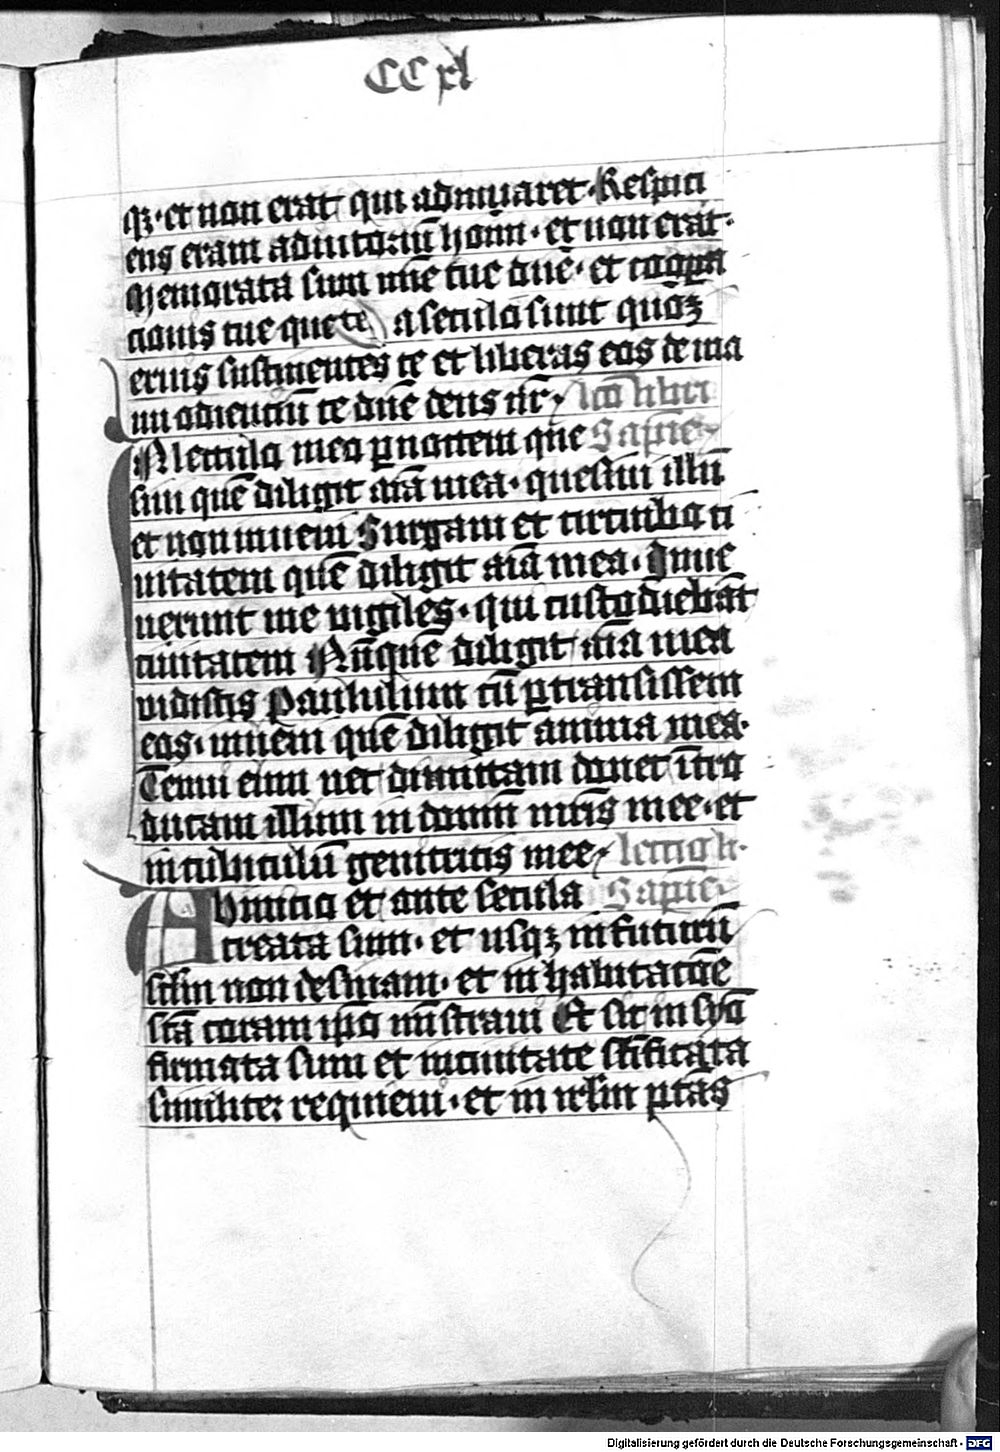 CCxl
qz · et non erat qui adiuuaret · Respici
ens eram adiutoriū homī · et non erat ·
Memorata sum mīe tue dn̄e · et
cionis tue que a seculo sunt quoz
eruis sustinentes te et liberas eos de ma
nu odientiū te dn̄e deus nr̄ lc̄o libri
N lectulo meo p noctem que Sapīe
siui quē diligit aīa mea · quesiui illū
et non inueni Surgam et circuibo ci
uitatem quē diligit aīa mea · Inue
nerunt me vigiles · qui custodiebāt
ciuitatem Nū quē diligit aīa mea
vidistis Paululum cū ptransissem
eos · inueni quē diligit anima mea ·
Tenui eum nec dimittam donec ītro
ducam illum in domū mr̄is mee · et
in cubiculū genitricis mee lectio li ·
Ab inicio et ante secula Sapīe
creata sum · et usqz in futurū
sclm̄ non desinam · et in habitacōe
sc̄a coram ipo mīstraui Et sic in syō
firmata sum et in ciuitate sc̄ificata
similiter requieui · et in irlm̄ ptās
Digitalisierung gefördert durch die Deutsche Forschungsgemeinschaft - DFG